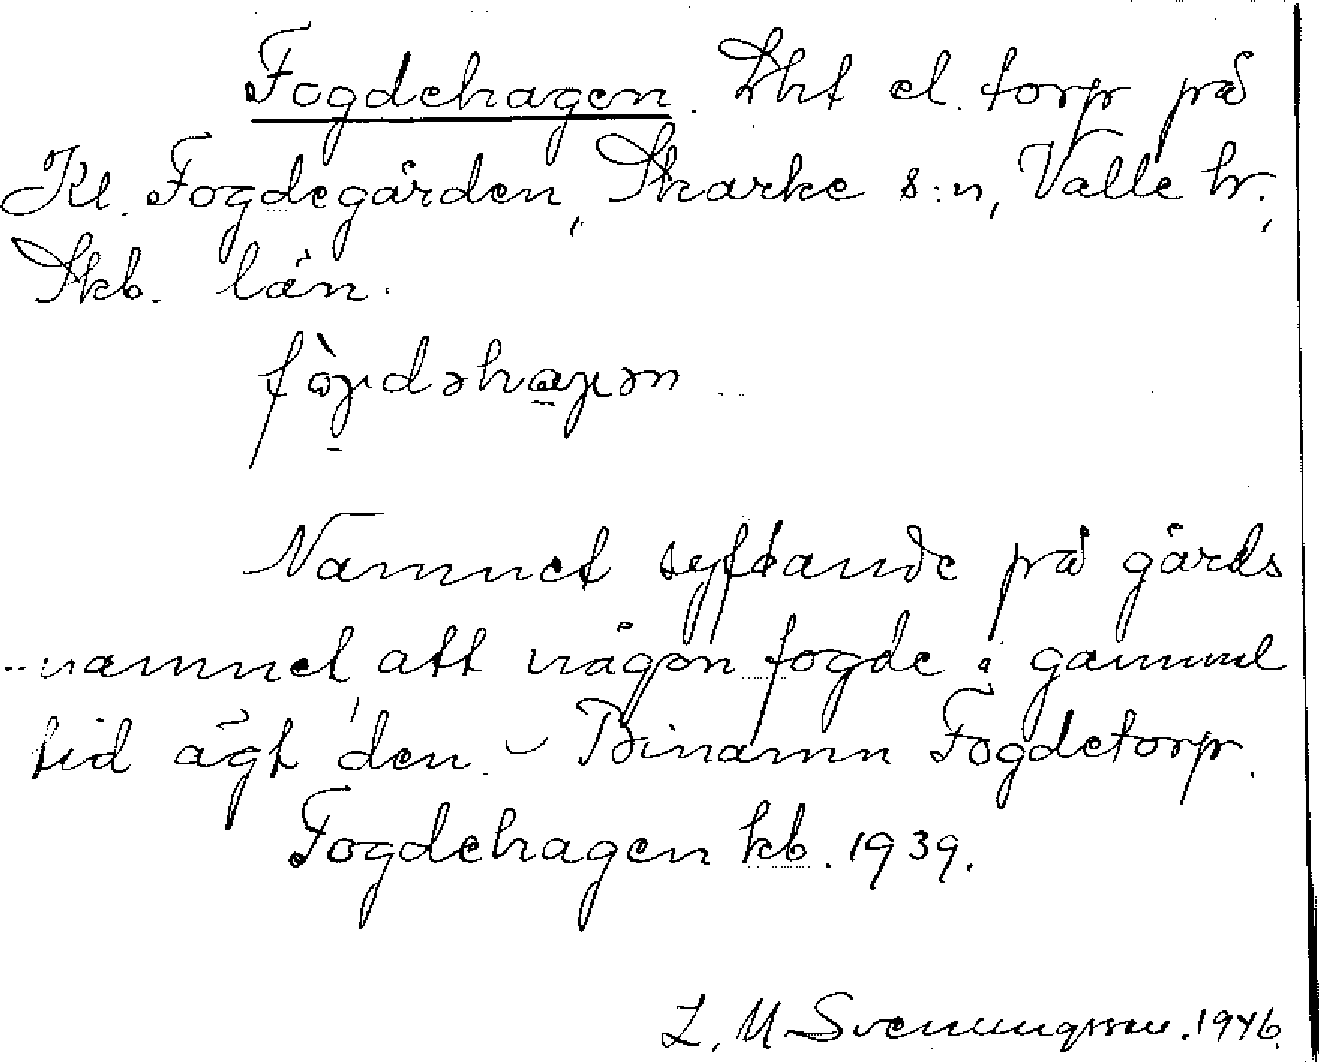 Fogdehagen. Lht el. torp på
Kl. Fogdegården, Skarke s:n, Valle hr.,
Skb. län.
Namnet syftande på gårds
namnet, att någon fogde i gammal
tid ägt den. – Binamn Fogdetorp.
Fogdehagen kb. 1939.
L. M. Svenungsson. 1946.